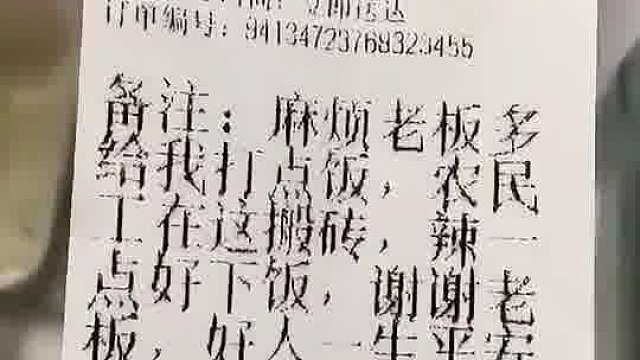 立即送达
订单编号：94134723768323455
备注：麻烦老板多
给我打点饭，农民
工在这搬砖，辣一
点好下饭，谢谢老
板，好人一生平安